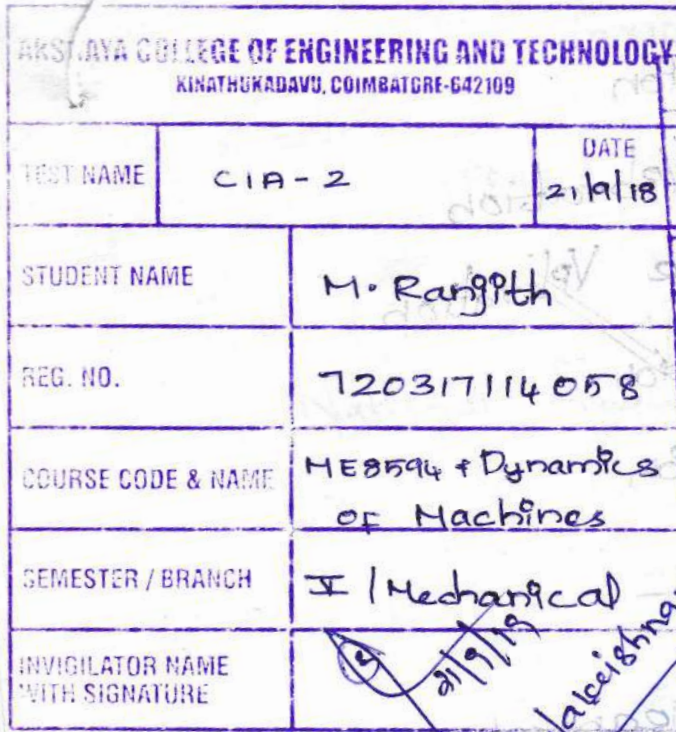 AKSHAYA COLLEGE OF ENGINEERING AND TECHNOLOGY
KINATHUKADAVU, COIMBATORE-642109
TEST NAME CIA-2 DATE 21/9/18
STUDENT NAME M. Rangith
REG. NO. 720317114058
COURSE CODE & NAME ME8594 & Dynamics
of Machines
SEMESTER / BRANCH V / Mechanical
INVIGILATOR NAME
WITH SIGNATURE 21/9/18